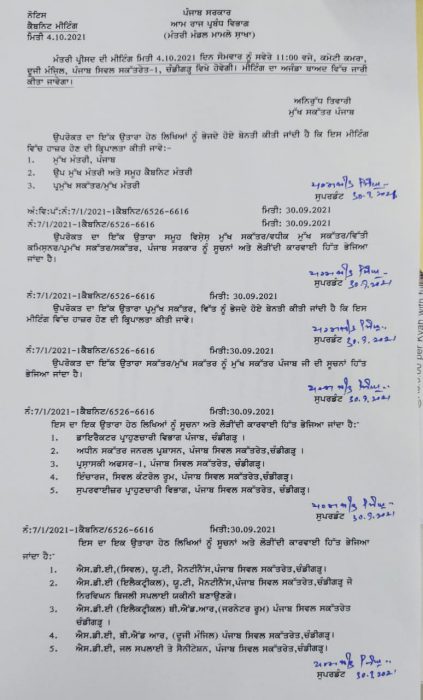 ਨੋਟਿਸ
ਕੈਬਨਿਟ ਮੀਟਿੰਗ
ਮਿਤੀ 4.10.2021
ਪੰਜਾਬ ਸਰਕਾਰ
ਆਮ ਰਾਜ ਪ੍ਰਬੰਧ ਵਿਭਾਗ
(ਮੰਤਰੀ ਮੰਡਲ ਮਾਮਲੇ ਸ਼ਾਖਾ)
ਮੰਤਰੀ ਪ੍ਰੀਸ਼ਦ ਦੀ ਮੀਟਿੰਗ ਮਿਤੀ 4.10.2021 ਦਿਨ ਸੋਮਵਾਰ ਨੂੰ ਸਵੇਰੇ 11:00 ਵਜੇ, ਕਮੇਟੀ ਕਮਰਾ,
ਦੂਜੀ ਮੰਜ਼ਿਲ, ਪੰਜਾਬ ਸਿਵਲ ਸਕੱਤਰੇਤ-1, ਚੰਡੀਗੜ੍ਹ ਵਿਖੇ ਹੋਵੇਗੀ। ਮੀਟਿੰਗ ਦਾ ਅਜੰਡਾ ਬਾਅਦ ਵਿੱਚ ਜਾਰੀ
ਕੀਤਾ ਜਾਵੇਗਾ।
ਅਨਿਰੁੱਧ ਤਿਵਾਰੀ
ਮੁੱਖ ਸਕੱਤਰ ਪੰਜਾਬ
ਉਪਰੋਕਤ ਦਾ ਇੱਕ ਉਤਾਰਾ ਹੇਠ ਲਿਖਿਆਂ ਨੂੰ ਭੇਜਦੇ ਹੋਏ ਬੇਨਤੀ ਕੀਤੀ ਜਾਂਦੀ ਹੈ ਕਿ ਇਸ ਮੀਟਿੰਗ
ਵਿੱਚ ਹਾਜ਼ਰ ਹੋਣ ਦੀ ਕ੍ਰਿਪਾਲਤਾ ਕੀਤੀ ਜਾਵੇ:-
1. ਮੁੱਖ ਮੰਤਰੀ, ਪੰਜਾਬ
2. ਉਪ ਮੁੱਖ ਮੰਤਰੀ ਅਤੇ ਸਮੂਹ ਕੈਬਨਿਟ ਮੰਤਰੀ
3. ਪ੍ਰਮੁੱਖ ਸਕੱਤਰ/ਮੁੱਖ ਮੰਤਰੀ
ਸੁਪਰਡੰਟ 30.9.2021
ਅ:ਵਿ:ਪੱ:ਨੰ:7/1/2021-1ਕੈਬਨਿਟ/6526-6616 ਮਿਤੀ: 30.09.2021
ਉਪਰੋਕਤ ਦਾ ਇੱਕ ਉਤਾਰਾ ਸਮੂਹ ਵਿਸ਼ੇਸ਼ ਮੁੱਖ ਸਕੱਤਰ/ਵਧੀਕ ਮੁੱਖ ਸਕੱਤਰ/ਵਿੱਤੀ
ਕਮਿਸ਼ਨਰ/ਪ੍ਰਮੁੱਖ ਸਕੱਤਰ/ਸਕੱਤਰ, ਪੰਜਾਬ ਸਰਕਾਰ ਨੂੰ ਸੂਚਨਾਂ ਅਤੇ ਲੋੜੀਂਦੀ ਕਾਰਵਾਈ ਹਿੱਤ ਭੇਜਿਆ
ਜਾਂਦਾ ਹੈ।
ਸੁਪਰਡੰਟ 30.9.2021
ਨੰ:7/1/2021-1ਕੈਬਨਿਟ/6526-6616 ਮਿਤੀ:30.09.2021
ਉਪਰੋਕਤ ਦਾ ਇੱਕ ਉਤਾਰਾ ਪ੍ਰਮੁੱਖ ਸਕੱਤਰ, ਵਿੱਤ ਨੂੰ ਭੇਜਦੇ ਹੋਏ ਬੇਨਤੀ ਕੀਤੀ ਜਾਂਦੀ ਹੈ ਕਿ ਇਸ
ਮੀਟਿੰਗ ਵਿੱਚ ਹਾਜ਼ਰ ਹੋਣ ਦੀ ਕ੍ਰਿਪਾਲਤਾ ਕੀਤੀ ਜਾਵੇ।
ਸੁਪਰਡੰਟ 30.9.2021
ਨੰ:7/1/2021-1ਕੈਬਨਿਟ/6526-6616 ਮਿਤੀ:30.09.2021
ਉਪਰੋਕਤ ਦਾ ਇੱਕ ਉਤਾਰਾ ਸਕੱਤਰ/ਮੁੱਖ ਸਕੱਤਰ ਨੂੰ ਮੁੱਖ ਸਕੱਤਰ ਪੰਜਾਬ ਜੀ ਦੀ ਸੂਚਨਾਂ ਹਿੱਤ
ਭੇਜਿਆ ਜਾਂਦਾ ਹੈ।
ਸੁਪਰਡੰਟ 30.9.2021
ਨੰ:7/1/2021-1ਕੈਬਨਿਟ/6526-6616 ਮਿਤੀ:30.09.2021
ਇਸ ਦਾ ਇਕ ਉਤਾਰਾ ਹੇਠ ਲਿਖਿਆਂ ਨੂੰ ਸੂਚਨਾਂ ਅਤੇ ਲੋੜੀਂਦੀ ਕਾਰਵਾਈ ਹਿੱਤ ਭੇਜਿਆ ਜਾਂਦਾ ਹੈ:-
1. ਡਾਇਰੈਕਟਰ ਪ੍ਰਾਹੁਣਚਾਰੀ ਵਿਭਾਗ ਪੰਜਾਬ, ਚੰਡੀਗੜ੍ਹ।
2. ਅਧੀਨ ਸਕੱਤਰ ਜਨਰਲ ਪ੍ਰਸ਼ਾਸਨ, ਪੰਜਾਬ ਸਿਵਲ ਸਕੱਤਰੇਤ,ਚੰਡੀਗੜ੍ਹ।
3. ਪ੍ਰਸ਼ਾਸਕੀ ਅਫਸਰ-1, ਪੰਜਾਬ ਸਿਵਲ ਸਕੱਤਰੇਤ, ਚੰਡੀਗੜ੍ਹ।
4. ਇੰਚਾਰਜ, ਸਿਵਲ ਕੰਟਰੋਲ ਰੂਮ, ਪੰਜਾਬ ਸਿਵਲ ਸਕੱਤਰੇਤ, ਚੰਡੀਗੜ੍ਹ।
5. ਸੁਪਰਵਾਈਜ਼ਰ ਪ੍ਰਾਹੁਣਚਾਰੀ ਵਿਭਾਗ, ਪੰਜਾਬ ਸਿਵਲ ਸਕੱਤਰੇਤ, ਚੰਡੀਗੜ੍ਹ।
ਸੁਪਰਡੰਟ 30.9.2021
ਨੰ:7/1/2021-1ਕੈਬਨਿਟ/6526-6616 ਮਿਤੀ:30.09.2021
ਇਸ ਦਾ ਇਕ ਉਤਾਰਾ ਹੇਠ ਲਿਖਿਆਂ ਨੂੰ ਸੂਚਨਾਂ ਅਤੇ ਲੋੜੀਂਦੀ ਕਾਰਵਾਈ ਹਿੱਤ ਭੇਜਿਆ
ਜਾਂਦਾ ਹੈ:-
1. ਐਸ.ਡੀ.ਈ,(ਸਿਵਲ), ਯੂ.ਟੀ, ਮੈਨਟੀਨੈਂਸ,ਪੰਜਾਬ ਸਿਵਲ ਸਕੱਤਰੇਤ,ਚੰਡੀਗੜ੍ਹ।
2. ਐਸ.ਡੀ.ਈ (ਇਲੈਕਟ੍ਰੀਕਲ), ਯੂ.ਟੀ, ਮੈਨਟੀਨੈਂਸ,ਪੰਜਾਬ ਸਿਵਲ ਸਕੱਤਰੇਤ,ਚੰਡੀਗੜ੍ਹ ਜੋ
ਨਿਰਵਿਘਨ ਬਿਜਲੀ ਸਪਲਾਈ ਯਕੀਨੀ ਬਣਾਉਣਗੇ।
3. ਐਸ.ਡੀ.ਈ (ਇਲੈਕਟ੍ਰੀਕਲ) ਬੀ.ਐਂਡ.ਆਰ,(ਜਰਨੇਟਰ ਰੂਮ) ਪੰਜਾਬ ਸਿਵਲ ਸਕੱਤਰੇਤ
ਚੰਡੀਗੜ੍ਹ ।
4. ਐਸ.ਡੀ.ਈ, ਬੀ.ਐਂਡ ਆਰ, (ਦੂਜੀ ਮੰਜਿਲ) ਪੰਜਾਬ ਸਿਵਲ ਸਕੱਤਰੇਤ,ਚੰਡੀਗੜ੍ਹ।
5. ਐਸ.ਡੀ.ਈ, ਜਲ ਸਪਲਾਈ ਤੇ ਸੈਨੀਟੇਸ਼ਨ, ਪੰਜਾਬ ਸਿਵਲ ਸਕੱਤਰੇਤ,ਚੰਡੀਗੜ੍ਹ।
ਸੁਪਰਡੰਟ 30.9.2021